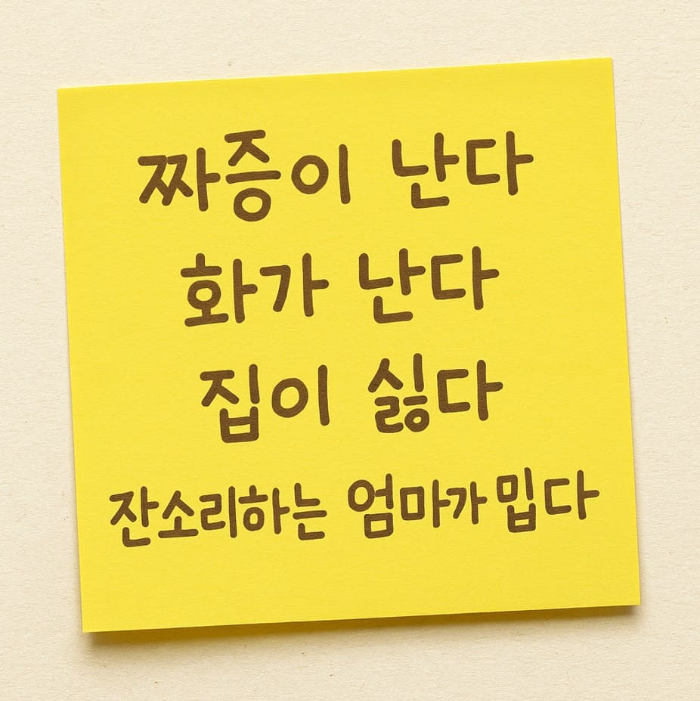 짜증이 난다
화가 난다
집이 싫다
잔소리하는 엄마가 밉다